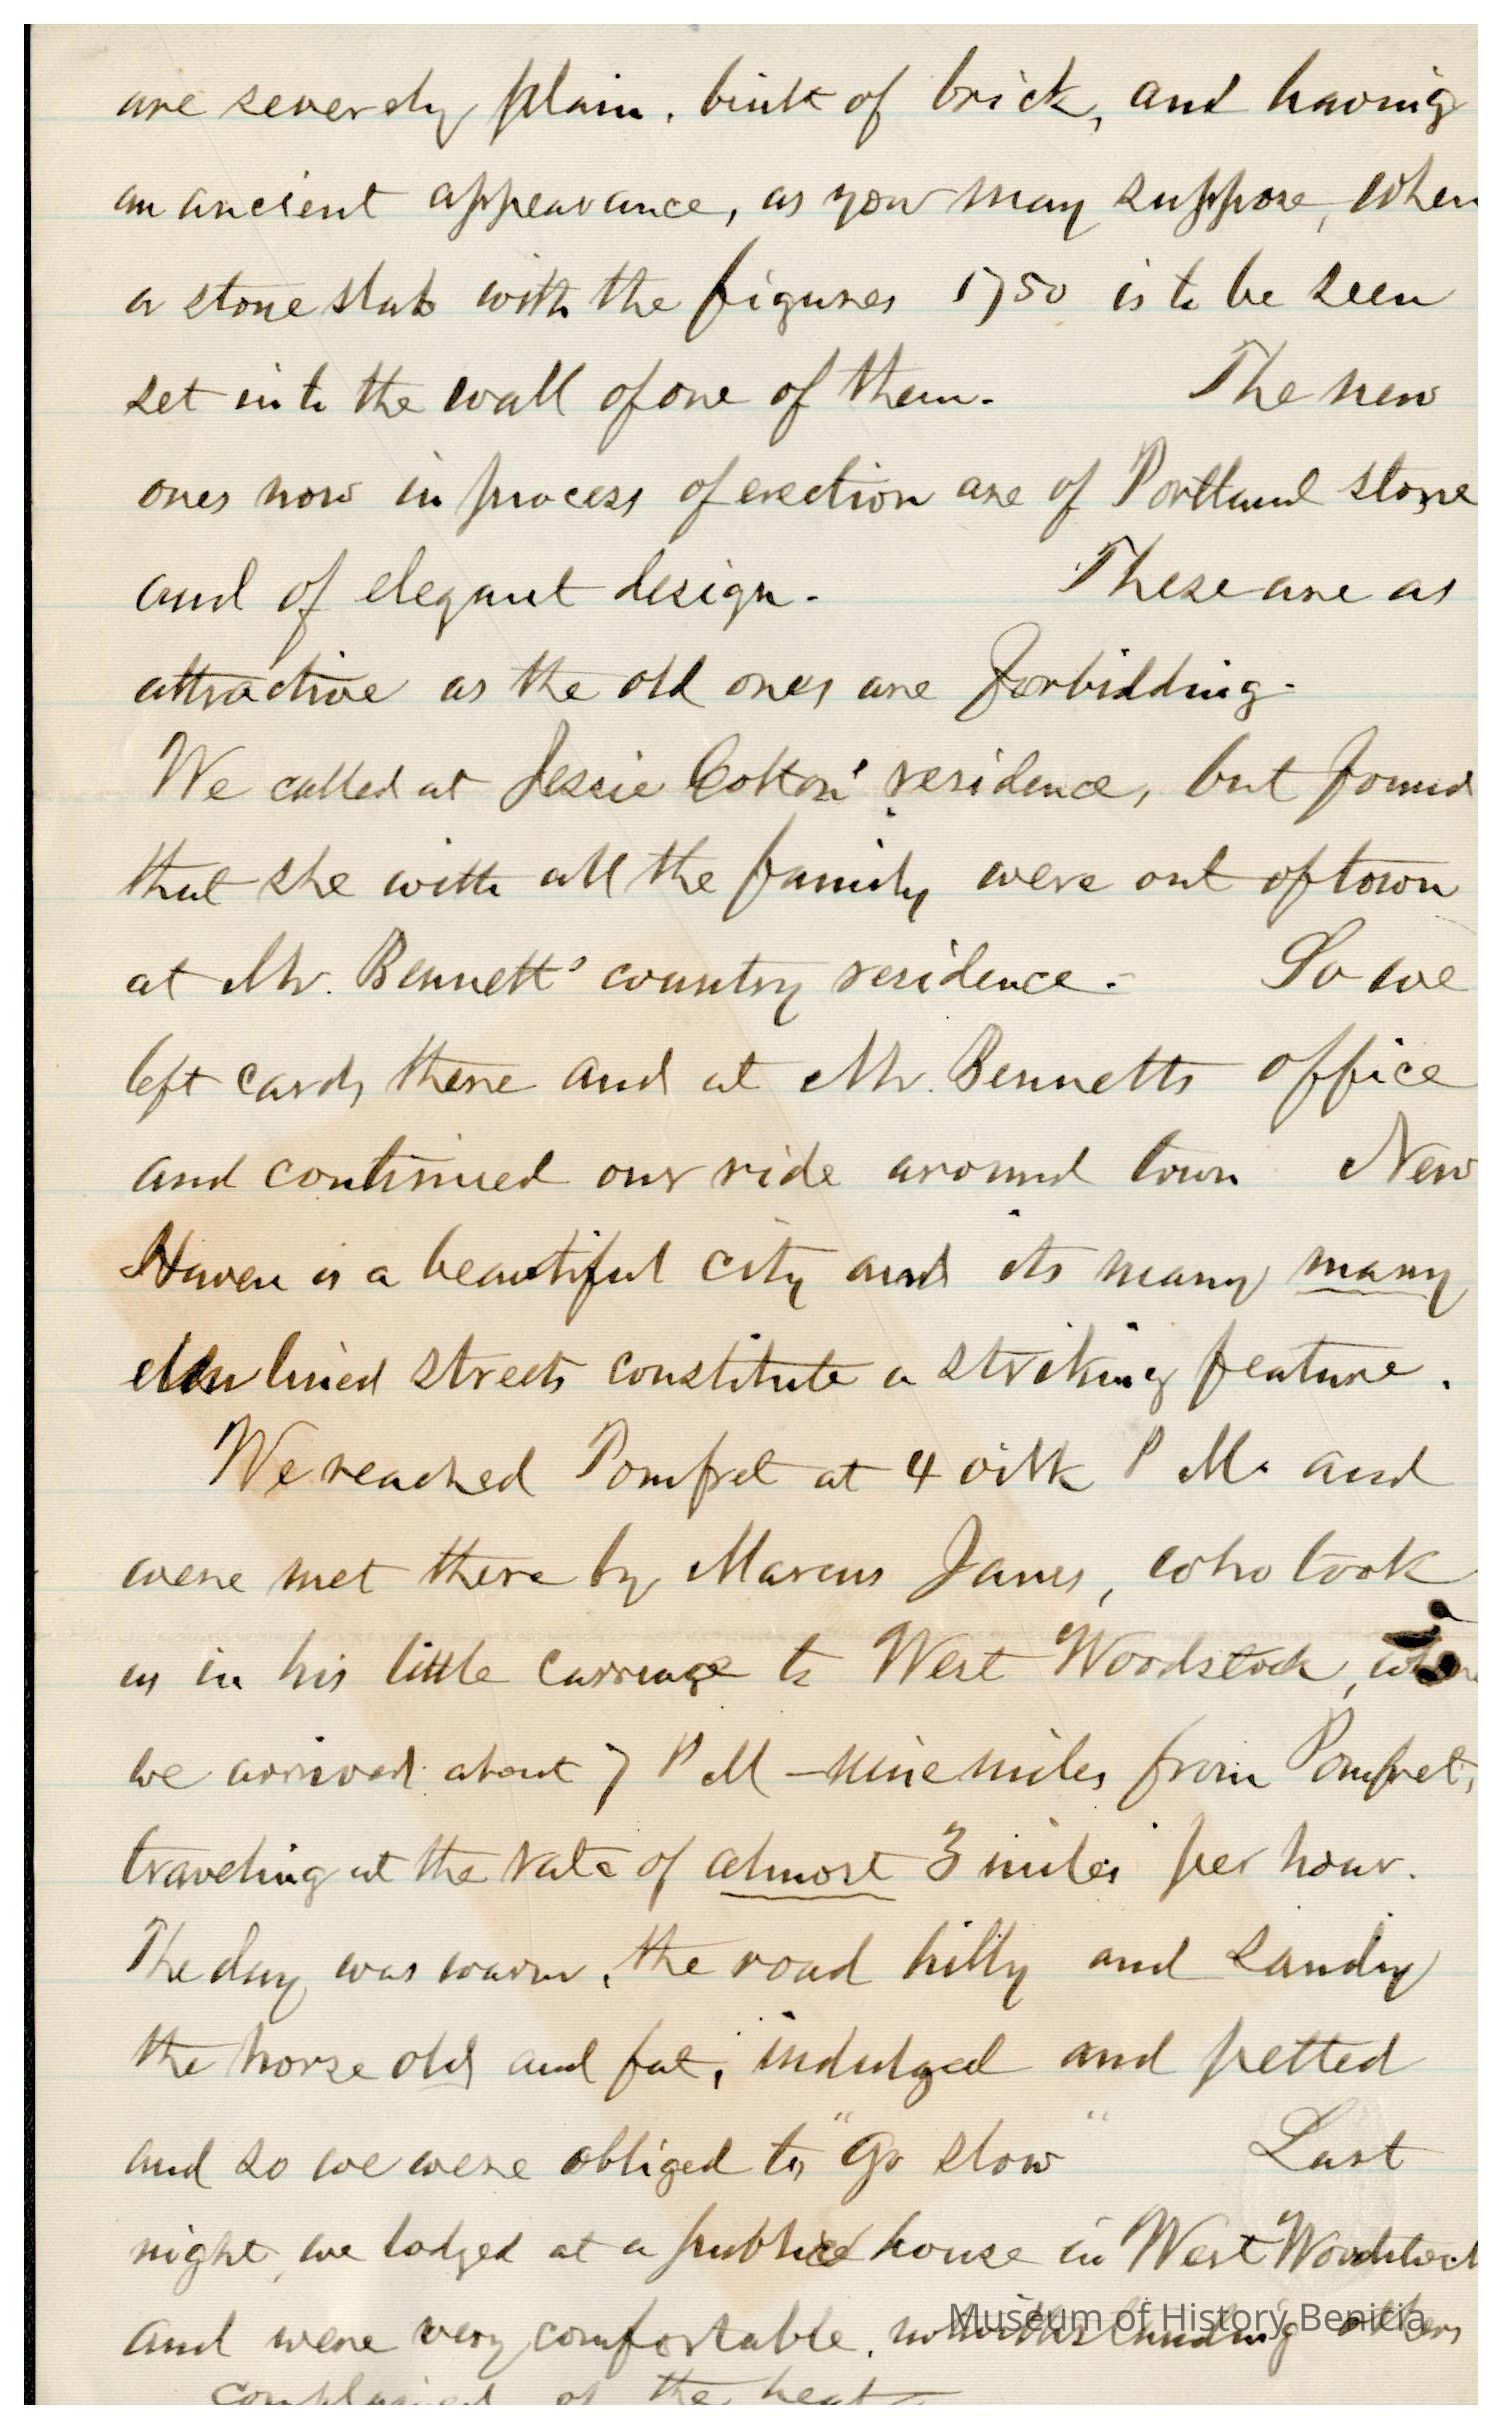 are severely plain, built of brick, and having
an ancient appearance, as you may suppose, when
a stone slab with the figures 1750 is to be seen
set into the wall of one of them. The new
ones now in process of erection are of Portland stone
and of elegant design. These are as
attractive as the old ones are forbidding.
We called at Jessie Cotton's residence, but found
that she with all the family were out of town
at Mr. Bennett's country residence. So we
left cards there and at Mr. Bennetts office
and continued our ride around town New
Haven is a beautiful city and its many many
elm lined streets constitute a striking feature.
We reached Pomfret at 4 P M. and
were met there by Marcus Janes, who took
us in his little carriage to West Woodstock, where
we arrived about 7 P M - nine miles from Pomfret,
traveling at the rate of almost 3 miles per hour.
The day was warm, the road hilly and sandy
the horse old and fat, indulged and petted
and so we were obliged to "go slow" Last
night, we lodged at a public house in West Woodstock
and were very comfortable, notwithstanding others
complained of the heat
Museum of History Benicia